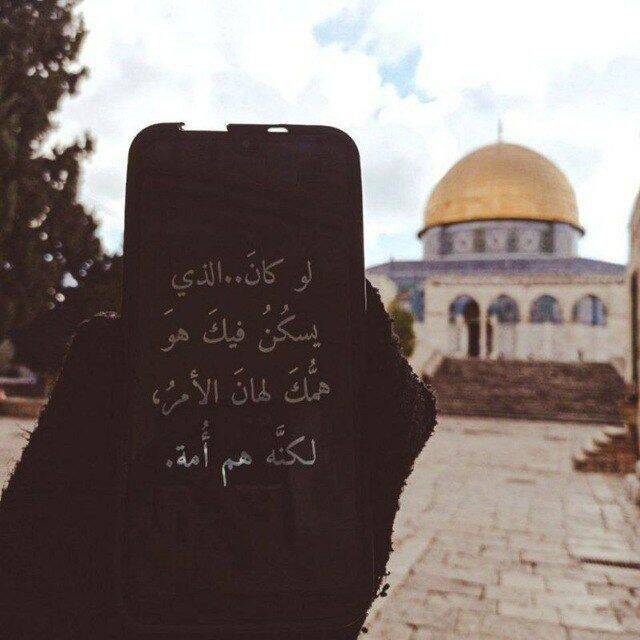 لو كانَ..الذي
يسكُنُ فيكَ هوَ
همُّكَ لهانَ الأمرُ،
لكنَّه هم أُمة.